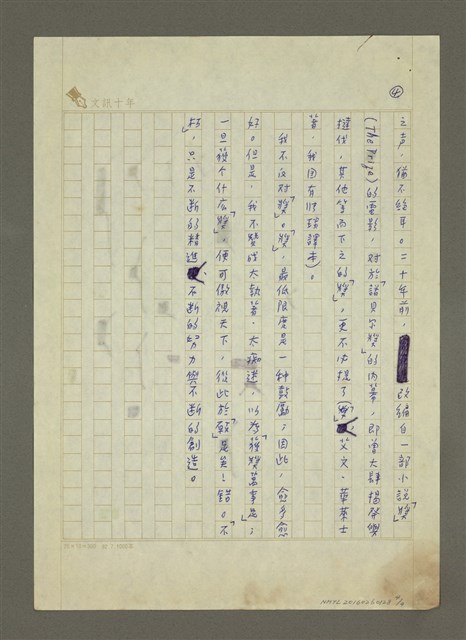 ④
之声，偏不絕耳。二十年前，改編自一部小說「獎」
(The Prize)的電影，对於「諾貝尔獎」的內幕，即曾大肆揭發與
撻伐，其他等而下之的「獎」，更不必提了(「獎」，艾文·華萊士
著，我国有何瑞譯本)。
我不反对「獎」。「獎」，最低限度是一种鼓勵；因此，愈多愈
好。但是，我不贊成太執著、太痴迷，以為「獲獎萬事足」；
一旦獲个什么「獎」，便可傲視天下，從此於是矣！錯。不
「朽」只是不断的精進、不断的努力與不断的創造。
文訊十年
NMTL20160260628